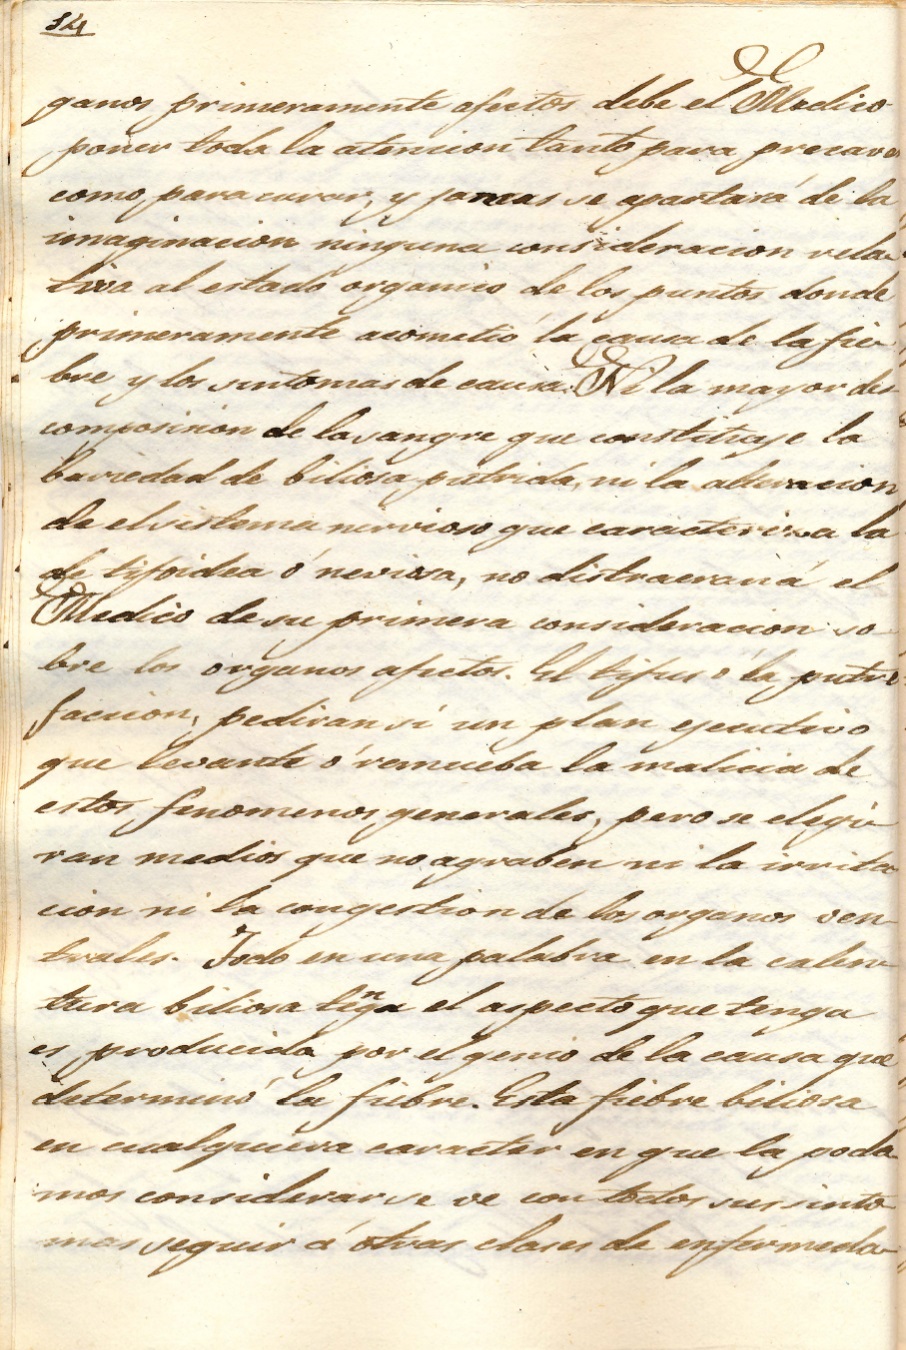 34
ganos primeramente afectos debe el Medico
poner toda la atencion tanto para precaver
como para curar, y jamas se apartará de la
imaginacion ninguna consideracion rela-
tiva al estado organico de los puntos donde
primeramente acometió la causa de la fie-
bre y los sintomas de causa. Ni la mayor des-
composicion de la sangre que constituye la
bariedad de biliosa putrida, ni la alteracion
de el sistema nervioso que caracteriza la
de tifoidea ó neviosa, no distraerán á el
Medico de su primera consideracion so-
bre los organos afectos. El tifus ó la putre
faccion, pediran sí un plan ejecutivo
que levante ó remueba la malicia de
estos fenomenos generales, pero se elegi-
ran medios que no agraben ni la irrita-
cion ni la congestion de los organos ven-
trales. Todo en una palabra en la calen-
tura biliosa tenga el aspecto que tenga
es producida por el genio de la causa que
determinó la fiebre. Esta fiebre biliosa
en cualquiera caracter en que la poda-
mos considerar se ve con todos sus sinto-
mas seguir á otras clases de enfermeda-